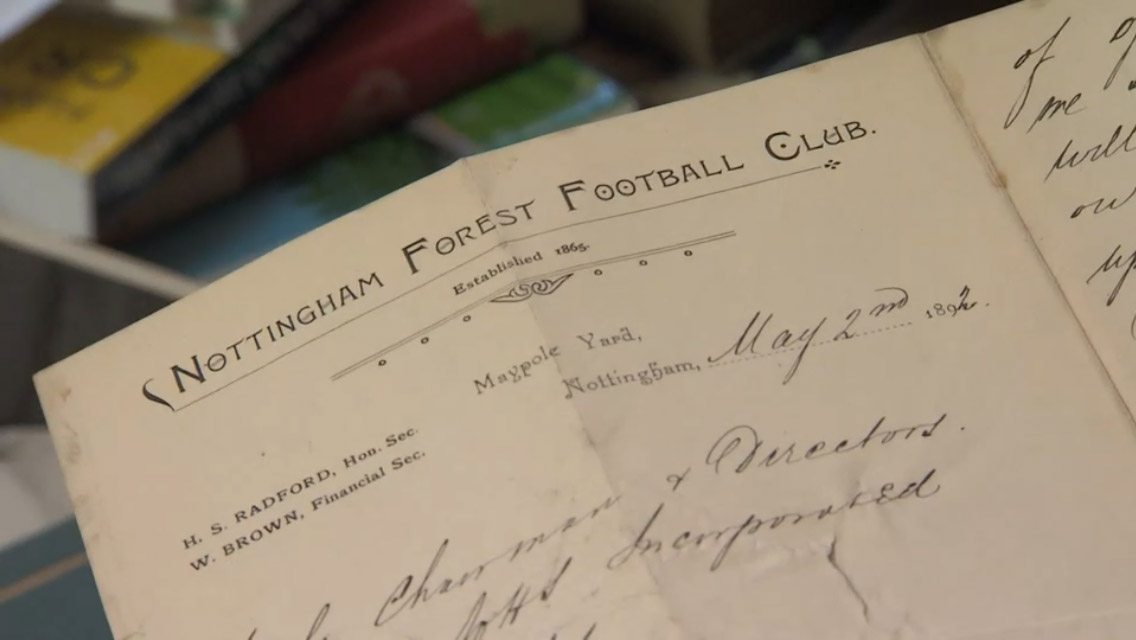 NOTTINGHAM FOREST FOOTBALL CLUB.
Established 1865.
Maypole Yard,
Nottingham, May 2nd 189
H. S. RADFORD, Hon. Sec.
W. BROWN, Financial Sec.
Chairman & Directors.
Notts Incorporated
of
me
will
our